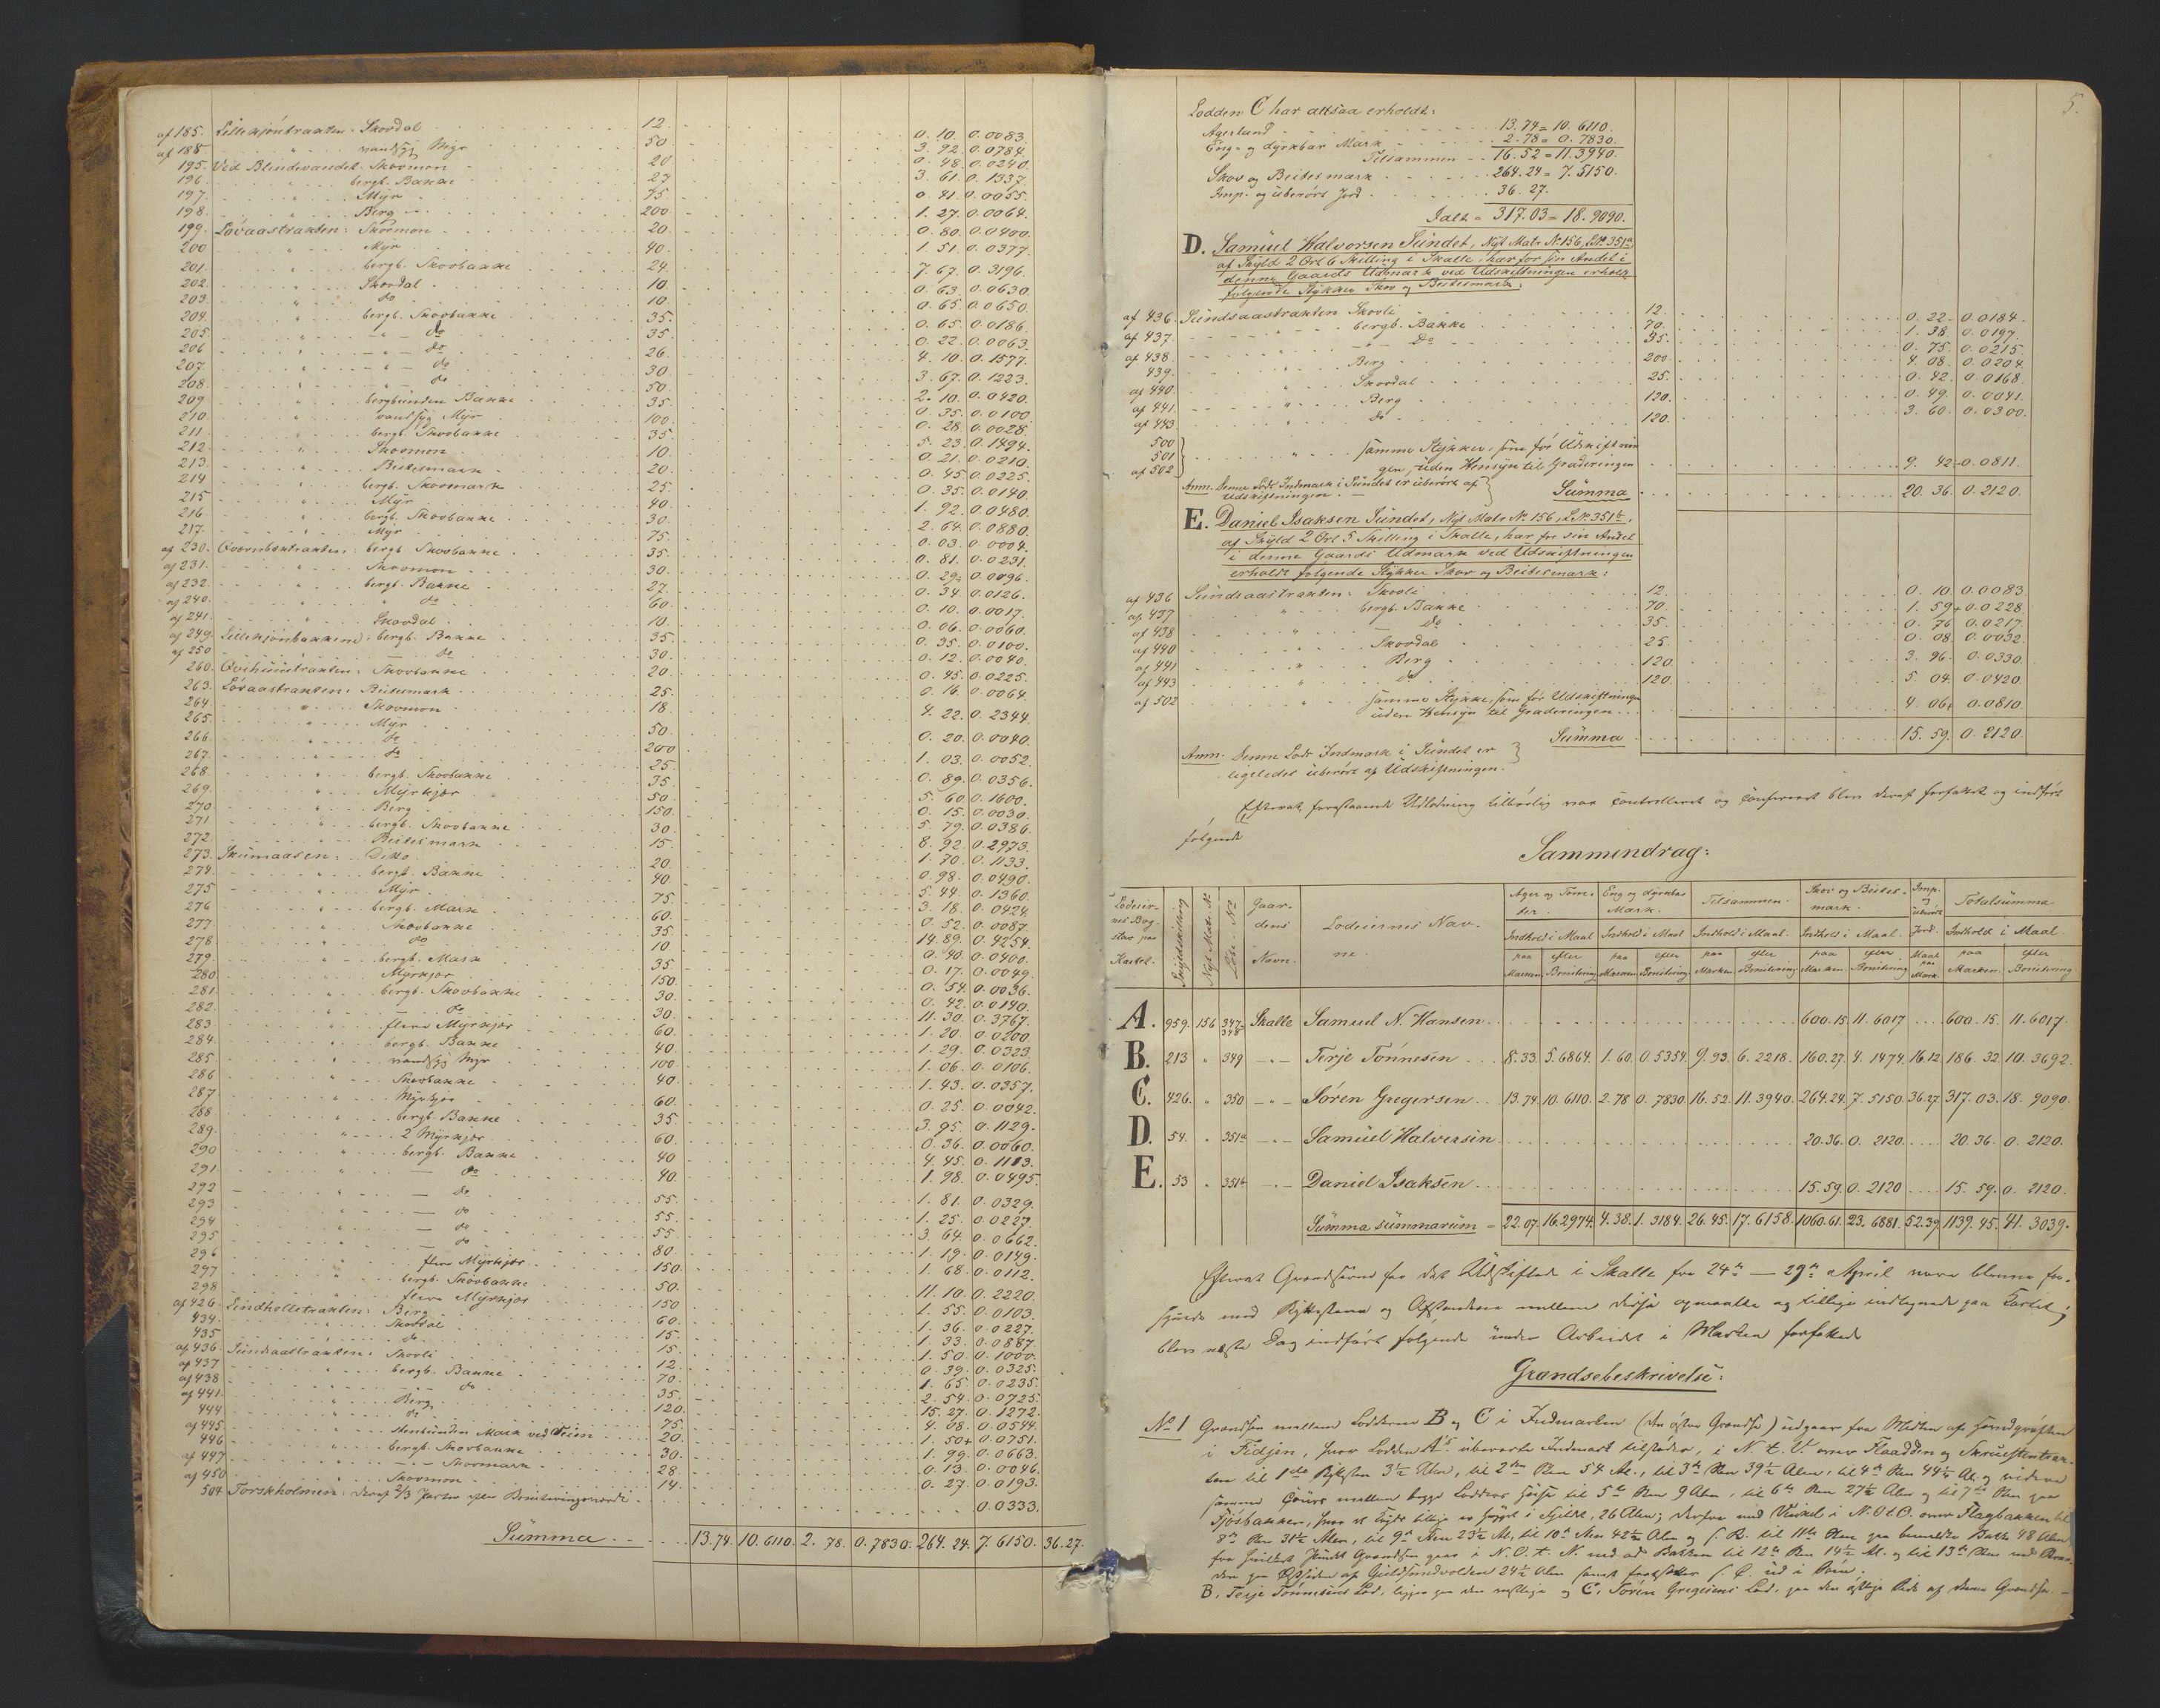 af 185. Lillekjóntrakten: Skovdal 12. 0. 10. 0.0083.
af 188. " vandsyg Myr 50. 3. 92. 0.0784.
195. Ved Blindevandet. Skovmon 20. 0. 48. 0.0240.
196. " bergb. Bakke 27. 3. 61. 0.1337.
197. " Myr 75. 0. 41. 0.0055.
198. " Berg 200. 1. 27. 0.0064.
199. Lóvaastrakten: Skovmon 20. 0. 80. 0.0400.
200 " Myr 40. 1. 51. 0.0377.
201. " bergb. Skovbakke 24. 7. 67. 0.3196.
202. " Skovdal 10. 0. 63. 0.0630.
203. " do 10. 0. 65. 0.0650.
204. " bergb. Skovbakke 35. 0. 65. 0.0186.
205. " - " - do 35. 0. 22. 0.0063.
206 " - " - do 26. 4. 10. 0.1577.
207. " - " - do 30. 3. 67. 0.1223.
208. " - " - do 50. 2. 10. 0.0420.
209 " bergbunden Bakke 35. 0. 35. 0.0100.
210. " vandsyg Myr 100. 0. 28. 0.0028.
211. " bergb. Skovbakke 35. 5. 23. 0.1494.
212. " Skovmon 10. 0. 21. 0.0210.
213. " Beitesmark 20. 0. 45. 0.0225.
214 " bergb. Skovmark 25. 0. 35. 0.0140.
215 " Myr 40. 1. 92. 0.0480.
216 " bergb. Skovbakke 30. 2. 64. 0.0880.
217. " Myr 75. 0. 03. 0.0004.
af 230. bergb. Skovbakke 35. 0. 81. 0.0231.
af 231. " Skovmon 30. 0. 29. 0.0096.
af 232. " bergb. Bakke 27. 0. 34. 0.0126.
af 240. " do 60. 0. 10. 0.0017.
af 241. " Skovdal 10. 0. 06. 0.0060.
af 249. Lillekjónbakkene: bergb. Bakke 35. 0. 35. 0.0100.
af 250 " do 30. 0. 12. 0.0040.
260. Skovbakke 20. 0. 45. 0.0225.
263. Lóvaastrakten: Beitesmark 25. 0. 16. 0.0064.
264. " Skovmon 18. 4. 22. 0.2344.
265. " Myr 50. 0. 20. 0.0040.
266. " do 200 1. 03. 0.0052.
267. " do 25. 0. 89. 0.0356.
268. " bergb. Skovbakke 35. 5. 60. 0.1600.
269. " Myrkjor 50. 0. 15. 0.0030.
270 " Berg 150. 5. 79. 0.0386.
271 " bergb. Skovbakke 30. 8. 92. 0.2973.
272. " Beitesmark 15. 1. 70. 0.1133.
273. Skumaasen: Ditto 20. 0. 98. 0.0490.
274. " bergb. Bakke 40. 5. 44. 0.1360.
275 " Myr 75. 3. 18. 0.0424.
276 " bergb. Mark 60. 0. 52. 0.0087.
277. " Skovbakke 35. 14. 89. 0.4254.
278 " do 10. 0. 40. 0.0400.
279. " bergb. Mark 35. 0. 17. 0.0049.
280 " Myrkjor 150. 0. 54. 0.0036.
281. " bergb. Skovbakke 30. 0. 42. 0.0140.
282. " do 30. 11. 30. 0.3767.
283. " flere Myrkjor 60. 1. 20. 0.0200.
284. " bergb. Bakke 40. 1. 29. 0.0323.
285 " vandsyg Myr 100. 1. 06. 0.0106.
286 " Skovbakke 40. 1. 43. 0.0357.
287 " Myrkjor 60. 0. 25. 0.0042.
288. " bergb. Bakke 35. 3. 95. 0.1129.
289. " 2 Myrkjor 60. 0. 36. 0.0060.
290 " bergb. Bakke 40 4. 45. 0.1113.
291 " do 40. 1. 98. 0.0495.
292 " do 55. 1. 81. 0.0329.
293 " do 55. 1. 25. 0.0227.
294 " do 55. 3. 64. 0.0662.
295 " do 80. 1. 19. 0.0149.
296 " flere Myrkjor 150. 1. 68. 0.0112.
297 " bergb. Skovbakke 50. 11. 10. 0.2220.
298 " flere Myrkjor 150 1. 55. 0.0103.
af 426. Lindholletrakten: Berg 60. 1. 36. 0.0227.
434. " Skovdal 15. 1. 33. 0.0887.
435 " do 15. 1. 50. 0.1000.
af 436. Sundsaastrakten: Skovli 12. 0. 39. 0.0325.
af 437 " bergb. Bakke 70. 1. 65. 0.0235.
af 438 " do 35. 2. 54. 0.0725.
af 441. " Berg 120. 15. 27. 0.1272.
444 " do 75. 4. 08. 0.0544.
af 445. " stenbunden Mark ved Veien 20. 1. 50+ 0.0751.
446 " bergb. Skovbakke 30. 1. 99. 0.0663.
af 447 " - " - Skovmark 28. 0. 13. 0.0046.
af 450 " Skovmon 14. 0. 27. 0.0193.
504 Torskholmen: deraf 2/3 Parter efter Boniteringsværdi 0.0333.
Summa 13.74. 10.6110. 2. 78. 0.7830. 264. 24. 7.6150. 36.27.
5.
Lodden C har altsaa erholdt:
Agerland 13.74 = 10. 6110.
Eng- og dyrkbar Mark 2.78 = 0. 7830.
Tilsammen 16.52 = 11.3940.
Skov og Beitesmark 264.24 = 7.5150.
Imp. og uberórt Jord 36. 27.
Ialt = 317.03 = 18.9090.
D. Samuel Halvorsen Sundet, Nyt Matr. No 156, L.No 351a
af Skyld 2 Ort 6 Skilling i Skalle, har for sin Andel i
denne Gaards Udmark ved Udskiftningen erholdt
følgende Stykker Skov og Beitesmark:
af 436. Sundsaastrakten Skovli 12. 0. 22. 0.0184.
af 437. bergb. Bakke 70. 1. 38. 0.0197.
af 438. do 35. 0. 75. 0.0215.
439. " Berg 200. 4 08. 0.0204.
af 440. " Skovdal 25. 0. 42. 0.0168.
af 441. " Berg 120. 0. 49. 0.0041.
af 443 " do 120. 3. 60. 0.0300.
500
501 " samme Stykker, som før Udskiftnin
af 502 gen, uden Hensyn til Graderingen 9. 42. 0.0811.
Anm. Denne Lods Indmark i Sundet er uberórt af
Udskiftningen. Summa 20. 36. 0.2120.
E. Daniel Isaksen Sundet, Nyt Matr. No. 156, L.No. 351b,
af Skyld 2 Ort 5 Skilling i Skalle, har for sin Andel
i denne Gaards Udmark ved Udskiftningen
erholdt følgende Stykker Skov og Beitesmark:
af 436 Sundsaastrakten: Skovli 12. 0. 10. 0.0083.
af 437 " bergb. Bakke 70. 1. 59+ 0.0228.
af 438 " do 35. 0. 76 0.0217.
af 440 " Skovdal 25. 0. 08. 0.0032.
af 441 " Berg 120. 3. 96. 0.0330.
af 443 " do 120. 5. 04. 0.0420.
af 502 " samme Stykke, som før Udskiftningen
uden Hensyn til Graderingen 4. 06+ 0.0810.
Summa 15. 59. 0. 2120.
Anm. Denne Lods Indmark i Sundet er
ligeledes uberórt af Udskiftningen.
Efterat foranstaaende Udlodning tilbørlig var controlleret og confereret blev deraf forfattet og indført
følgende
Sammendrag:
Lodeier-nes Bogstav paa Kartet. Skyldskilling Nyt Matr. No Løbe No Gaardens Navn. Lodeiernes Navne. Ager og Tomter. Eng og dyrkbar Mark. Tilsammen. Skov og Beitesmark. Imp. og uberórt Jord. Totalsumma
Indhold i Maal Indhold i Maal Indhold i Maal. Indhold i Maal. Indhold i Maal.
paa Marken. efter Bonitering paa Marken. efter Bonitering paa Marken. efter Bonitering paa Marken. efter Bonitering Maal paa Mark. paa Marken. efter Bonitering
A. 959. 156 347. 348 Skalle Samuel N. Hansen 600.15. 11.6017 600. 15. 11.6017.
B. 213 " 349 - " - Terje Tónnesen 8.33. 5.6864. 1.60. 0.5354. 9.93. 6.2218. 160.27. 4.1474. 16.12 186. 32. 10.3692.
C. 426. " 350 - " - Sóren Gregersen 13.74. 10.6110. 2.78 0.7830. 16.52. 11.3940. 264.24. 7.5150. 36.27. 317.03. 18.9090.
D. 54. " 351a - " - Samuel Halvorsen 20.36. 0. 2120. 20.36. 0. 2120.
E. 53 " 351b - " - Daniel Isaksen 15.59. 0. 2120 15. 59. 0. 2120.
Summa summarum = 22.07. 16.2974. 4.38. 1.3184. 26.45. 17.6158. 1060.61. 23.6881. 52.39. 1139.45. 41.3039.
Efterat Grændserne for det Udskiftede i Skalle fra 24de — 29de April vare blevne for-
synede med Byttestene og Afstandene mellem disse opmaalte og tillige indtegnede paa Kartet;
blev næste Dag indført følgende under Arbeidet i Marken forfattede
Grændsebeskrivelse:
No 1 Grændsen mellem Lodderne B og C i Indmarken (den østre Grændse) udgaar fra Midten af
i Fidjen, hvor Lodden A's uberørte Indmark tilstøder, i N. t. V. over Flaadden og
ten til 1ste Byttesten 3½ Alen, til 2den Sten 54 Al., til 3de Sten 39½ Alen, til 4de Sten 44½ Al. og videre
samme Cours mellem begge Lodders til 5te Sten 9 Alen, til 6te Sten 27½ Alen og til 7de Sten paa
Fjósbakken, 26 Alen; derfra med Vinkel i N.O.t.O. over Flagbakken til
8de Sten 31½ Alen, til 9de Sten 23½ Al., til 10de Sten 42½ Alen og til 11te Sten paa bemeldte Bakke 48 Alen
fra hvilket Punkt Grændsen gaar i N.O.t.N. ned ad Bakken til 12te Sten 14½ Al. og til 13de Sten ved
24½ Alen samt fortsætter ud i
B. Terje Tónnesens Lod, ligger paa den vestlige og C. Sóren Gregersens Lod, paa den østlige Side af denne Grændse.